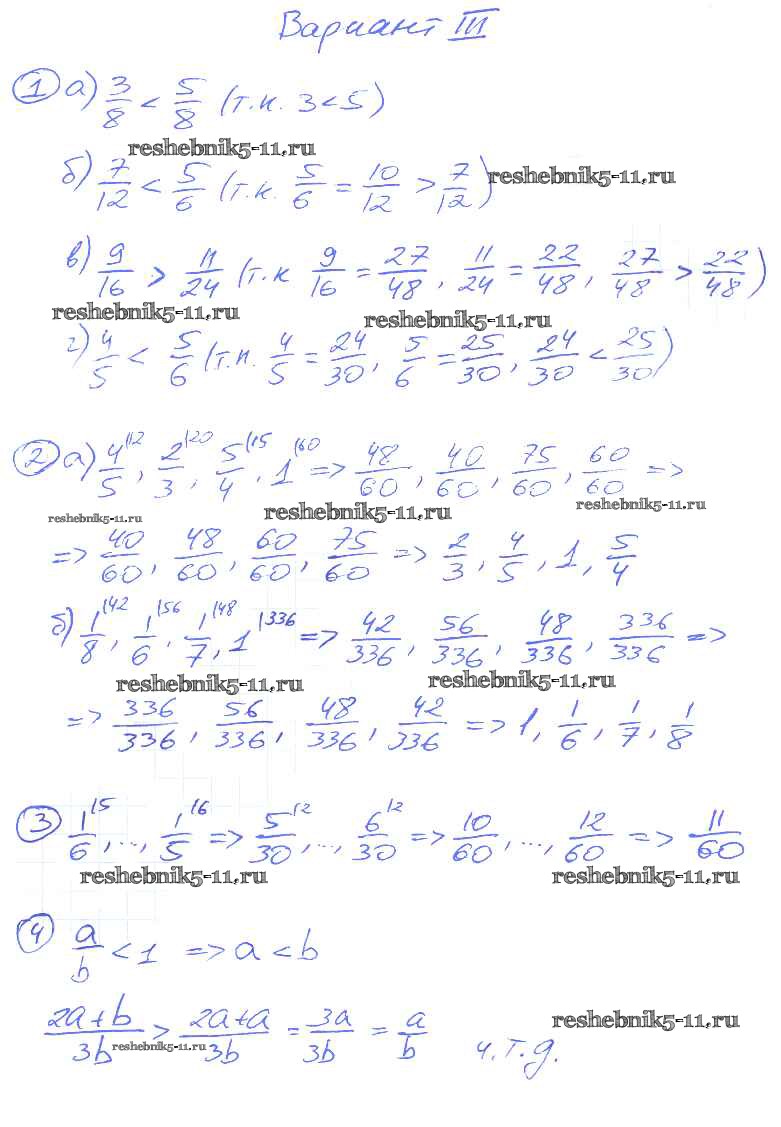 Вариант III
1 а) 3/8 < 5/8 (т.к. 3 < 5)
reshebnik5-11.ru
б) 7/12 < 5/6 (т.к. 5/6 = 10/12 > 7/12)
reshebnik5-11.ru
в) 9/16 > 11/24 (т.к 9/16 = 27/48, 11/24 = 22/48, 27/48 > 22/48)
reshebnik5-11.ru
reshebnik5-11.ru
г) 4/5 < 5/6 (т.к. 4/5 = 24/30, 5/6 = 25/30, 24/30 < 25/30)
2 а) 4/5 |12, 2/3 |20, 5/4 |15, 1 |60 => 48/60, 40/60, 75/60, 60/60 =>
reshebnik5-11.ru
reshebnik5-11.ru
reshebnik5-11.ru
=> 40/60, 48/60, 60/60, 75/60 => 2/3, 4/5, 1, 5/4
б) 1/8 |42, 1/6 |56, 1/7 |48, 1 |336 => 42/336, 56/336, 48/336, 336/336 =>
reshebnik5-11.ru
reshebnik5-11.ru
=> 336/336, 56/336, 48/336, 42/336 => 1, 1/6, 1/7, 1/8
3 1/6 |5, ..., 1/5 |6 => 5/30 |2, ..., 6/30 |2 => 10/60, ..., 12/60 => 11/60
reshebnik5-11.ru
reshebnik5-11.ru
4 a/b < 1 => a < b
2a+b/3b > 2a+a/3b = 3a/3b = a/b ч.т.д.
reshebnik5-11.ru
reshebnik5-11.ru